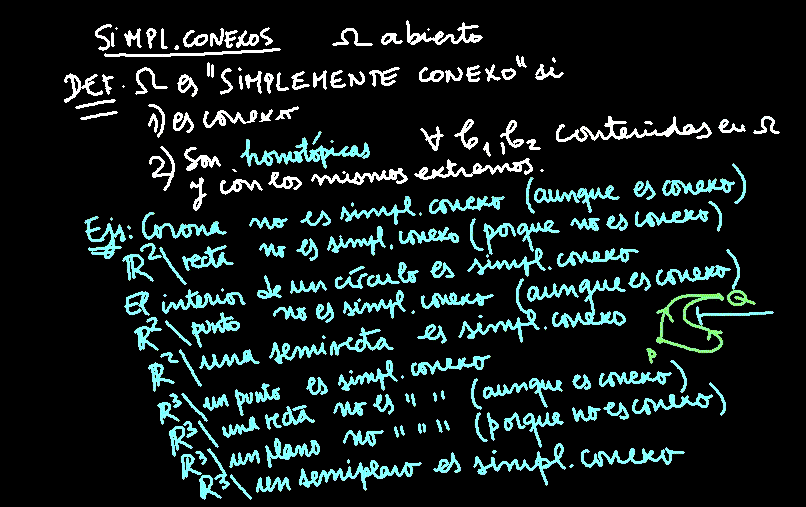 SIMPL. CONEXOS Ω abierto
DEF. Ω es "SIMPLEMENTE CONEXO" si
1) es conexo
2) Son homotópicas ∀ C₁, C₂ contenidas en Ω
y con los mismos extremos.
Ejs: Corona no es simpl. conexo (aunque es conexo)
ℝ² \ recta no es simpl. conexo (porque no es conexo)
El interior de un círculo es simpl. conexo
ℝ² \ punto no es simpl. conexo (aunque es conexo)
ℝ² \ una semirrecta es simpl. conexo
P Q
ℝ³ \ un punto es simpl. conexo
ℝ³ \ una recta no es " " (aunque es conexo)
ℝ³ \ un plano no " " " (porque no es conexo)
ℝ³ \ un semiplano es simpl. conexo